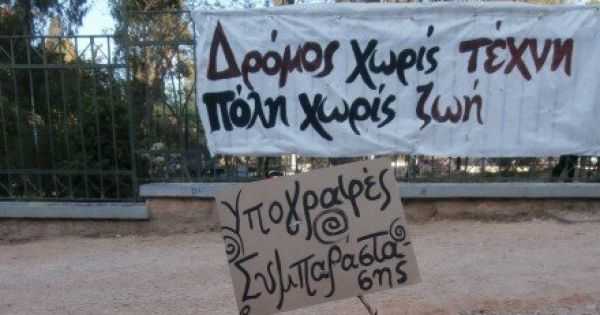 Δρόμος χωρίς τέχνη
πόλη χωρίς ζωή
Υπογραφές
Συμπαράστα-
σης